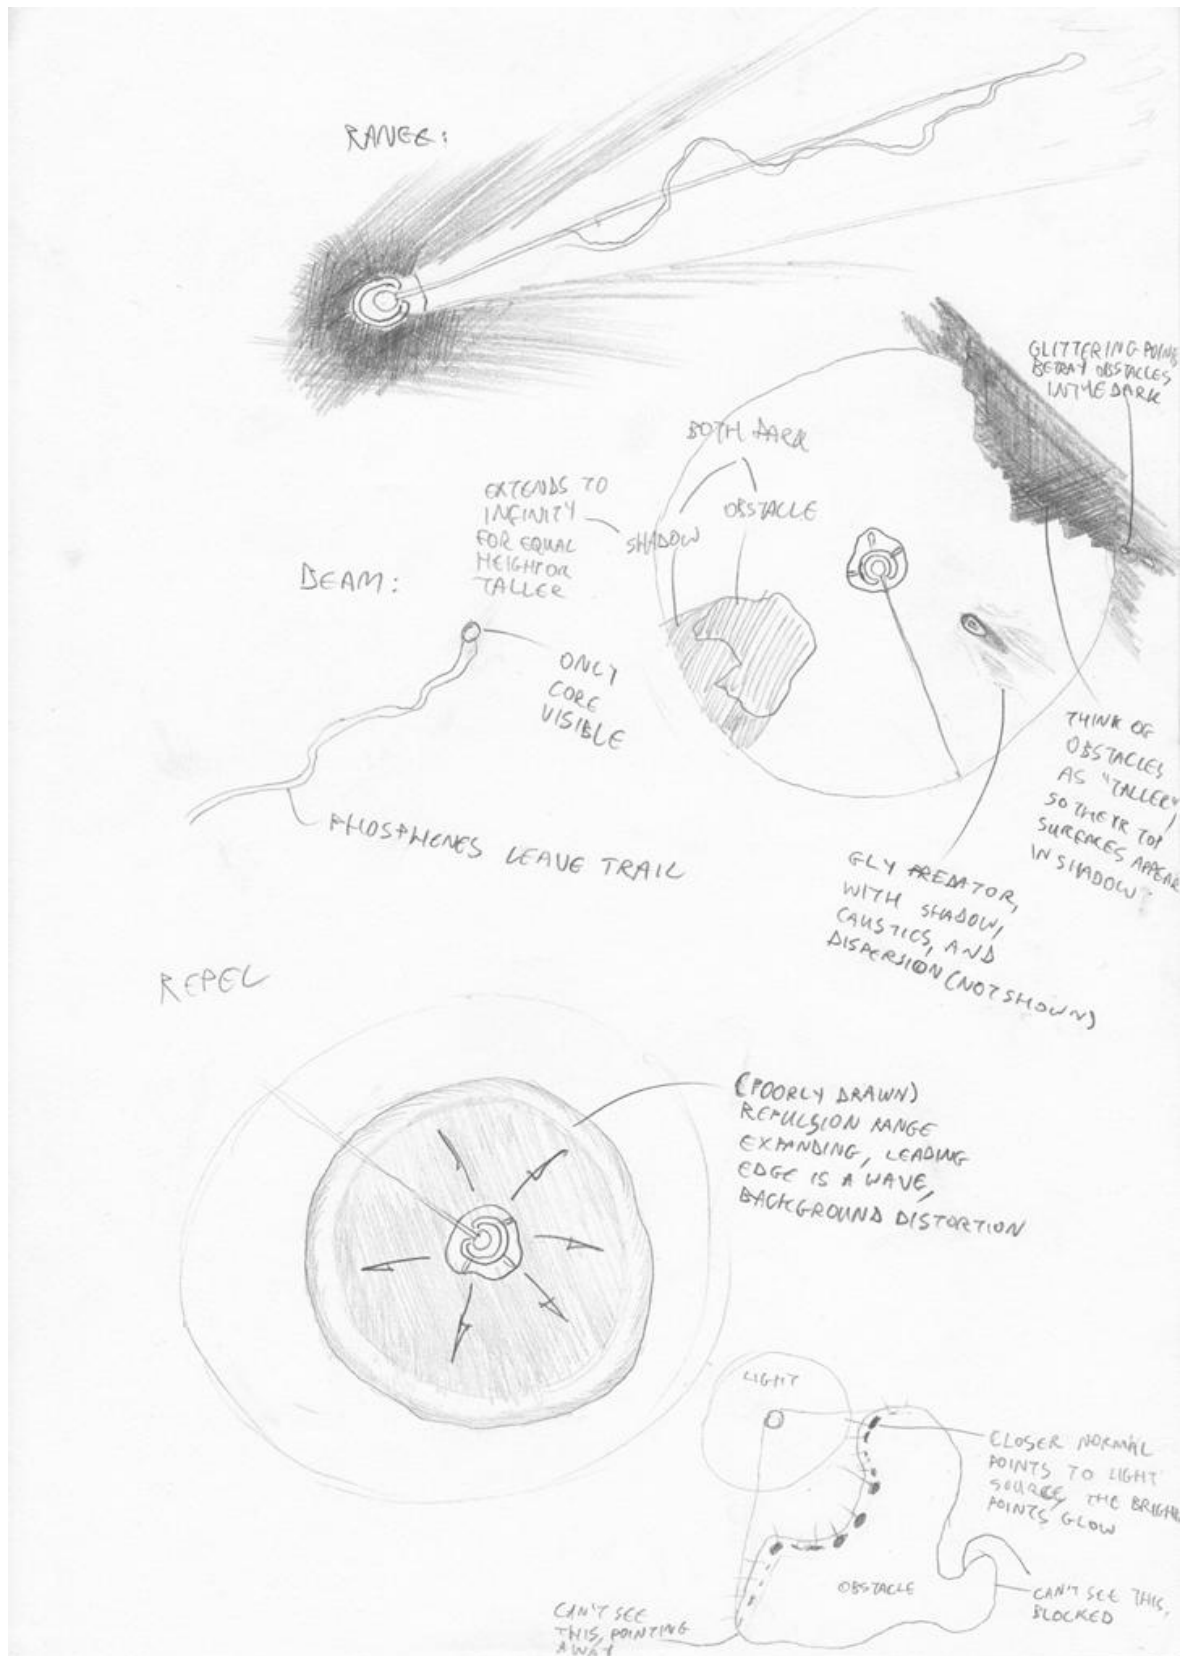 RANGE:
GLITTERING POINTS
BETRAY OBSTACLES
IN THE DARK
BOTH DARK
EXTENDS TO
INFINITY
FOR EQUAL
HEIGHT OR
TALLER
SHADOW
OBSTACLE
BEAM:
ONLY
CORE
VISIBLE
PHOSPHENES LEAVE TRAIL
THINK OF
OBSTACLES
AS "TALLER",
SO THEIR TOP
SURFACES APPEAR
IN SHADOW
GLY PREDATOR,
WITH SHADOW,
CAUSTICS, AND
DISPERSION (NOT SHOWN)
REPEL
(POORLY DRAWN)
REPULSION RANGE
EXPANDING, LEADING
EDGE IS A WAVE,
BACKGROUND DISTORTION
LIGHT
CLOSER NORMAL
POINTS TO LIGHT
SOURCE, THE BRIGHTER
POINTS GLOW
OBSTACLE
CAN'T SEE THIS,
BLOCKED
CAN'T SEE
THIS, POINTING
AWAY